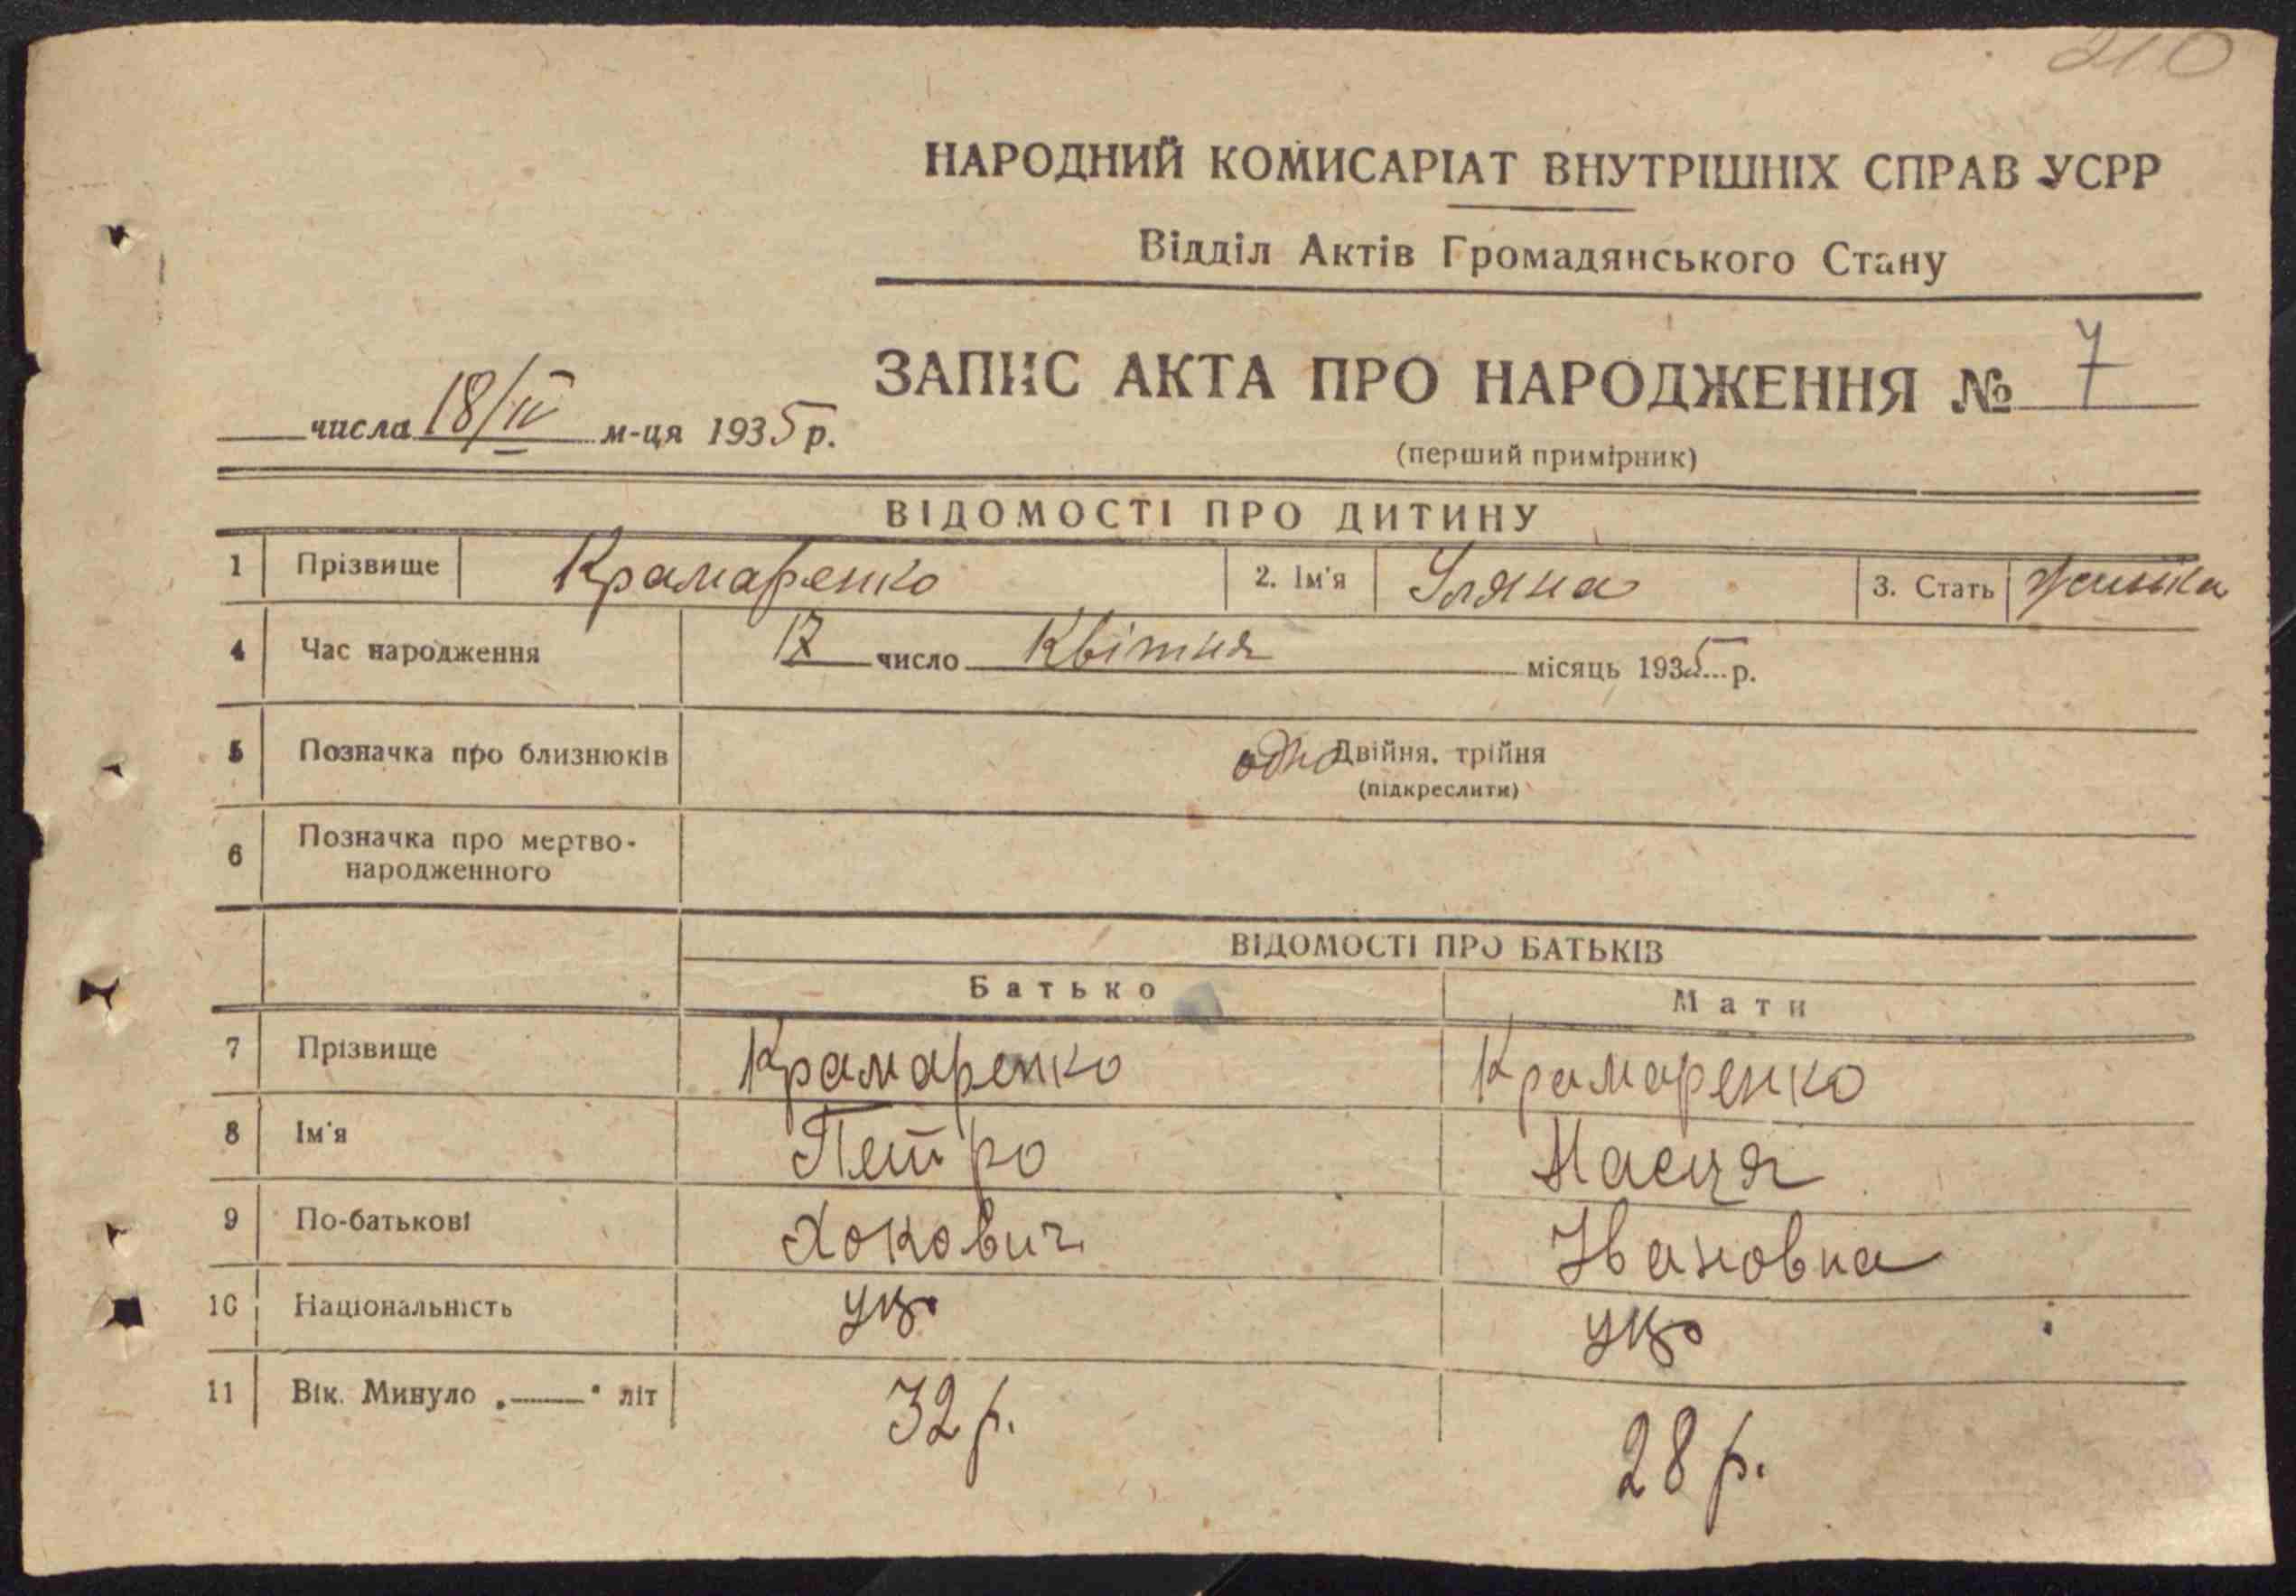 210
НАРОДНИЙ КОМИСАРІАТ ВНУТРІШНІХ СПРАВ УСРР
Відділ Актів Громадянського Стану
ЗАПИС АКТА ПРО НАРОДЖЕННЯ № 7
числа 18/IV м-ця 1935 р.
(перший примірник)
ВІДОМОСТІ ПРО ДИТИНУ
1 Прізвище Крамаренко 2. Ім'я Уляна 3. Стать
4 Час народження 17 число Квітня місяць 1935 р.
5 Позначка про близнюків одно Двійня, трійня
(підкреслити)
6 Позначка про мертво-
народженного
ВІДОМОСТІ ПРО БАТЬКІВ
Батько Мати
7 Прізвище Крамаренко Крамаренко
8 Ім'я Петро
9 По-батькові Хокович Івановна
10 Національність укр. укр.
11 Вік. Минуло „——" літ 32 р. 28 р.